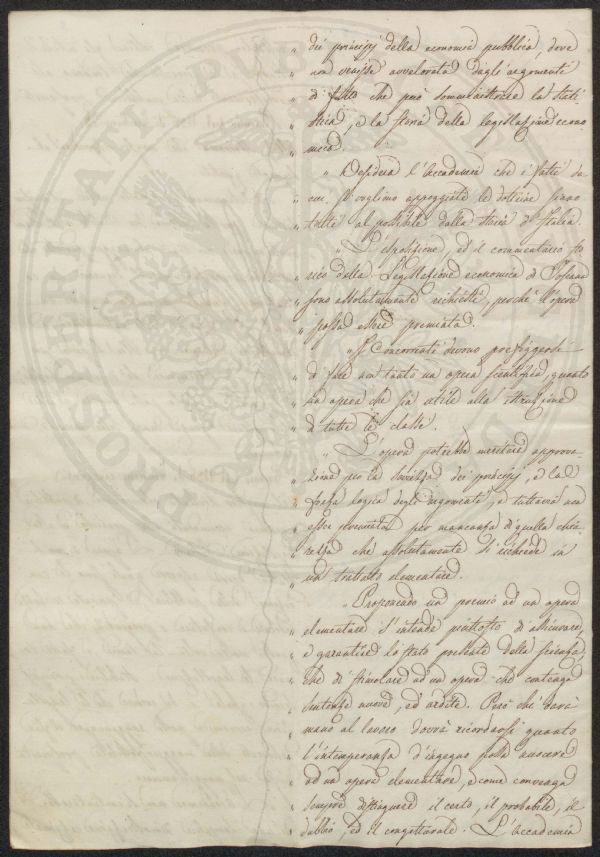 " dei principj della economia pubblica, dove
" non venisse avvalorata dagli argomenti
" di fatto che può somministrare la stati
" stica, e la storia della legislazione econo
" mica.
" Desidera l'Accademia che i fatti su
" cui si vogliono appoggiate le dottrine siano
" tolti al possibile dalla storia d'Italia.
" L'esposizione, ed il commentario sto
" rico della Legislazione economica di Toscana
" sono assolutamente richiesti, perchè l'opera
" possa essere premiata.
" I Concorrenti devono prefiggersi
" di fare non tanto un opera scientifica, quanto
" un opera che sia utile alla istruzione
" di tutte le classi.
" L'opera potrebbe meritare approva-
" zione per la sceltezza dei principj, e la
" forza logica degli argomenti, e tuttavia non
" esser coronata per mancanza di quella chia
" rezza che assolutamente si richiede in
" un trattato elementare.
" Proponendo un premio ad un opera
" elementare s'intende piuttosto di assicurare,
" e garantire lo stato presente della scienza,
" che di stimolare ad un opera che contenga
" sentenze nuove, ed ardite. Però chi darà
" mano al lavoro dovrà ricordarsi quanto
" l'intemperanza d'ingegno possa nuocere
" ad un opera elementare, e come convenga
" sempre distinguere il certo, il probabile, il
" dubbio, ed il congetturale. L'Accademia
PROSPERITATI PUBLICAE